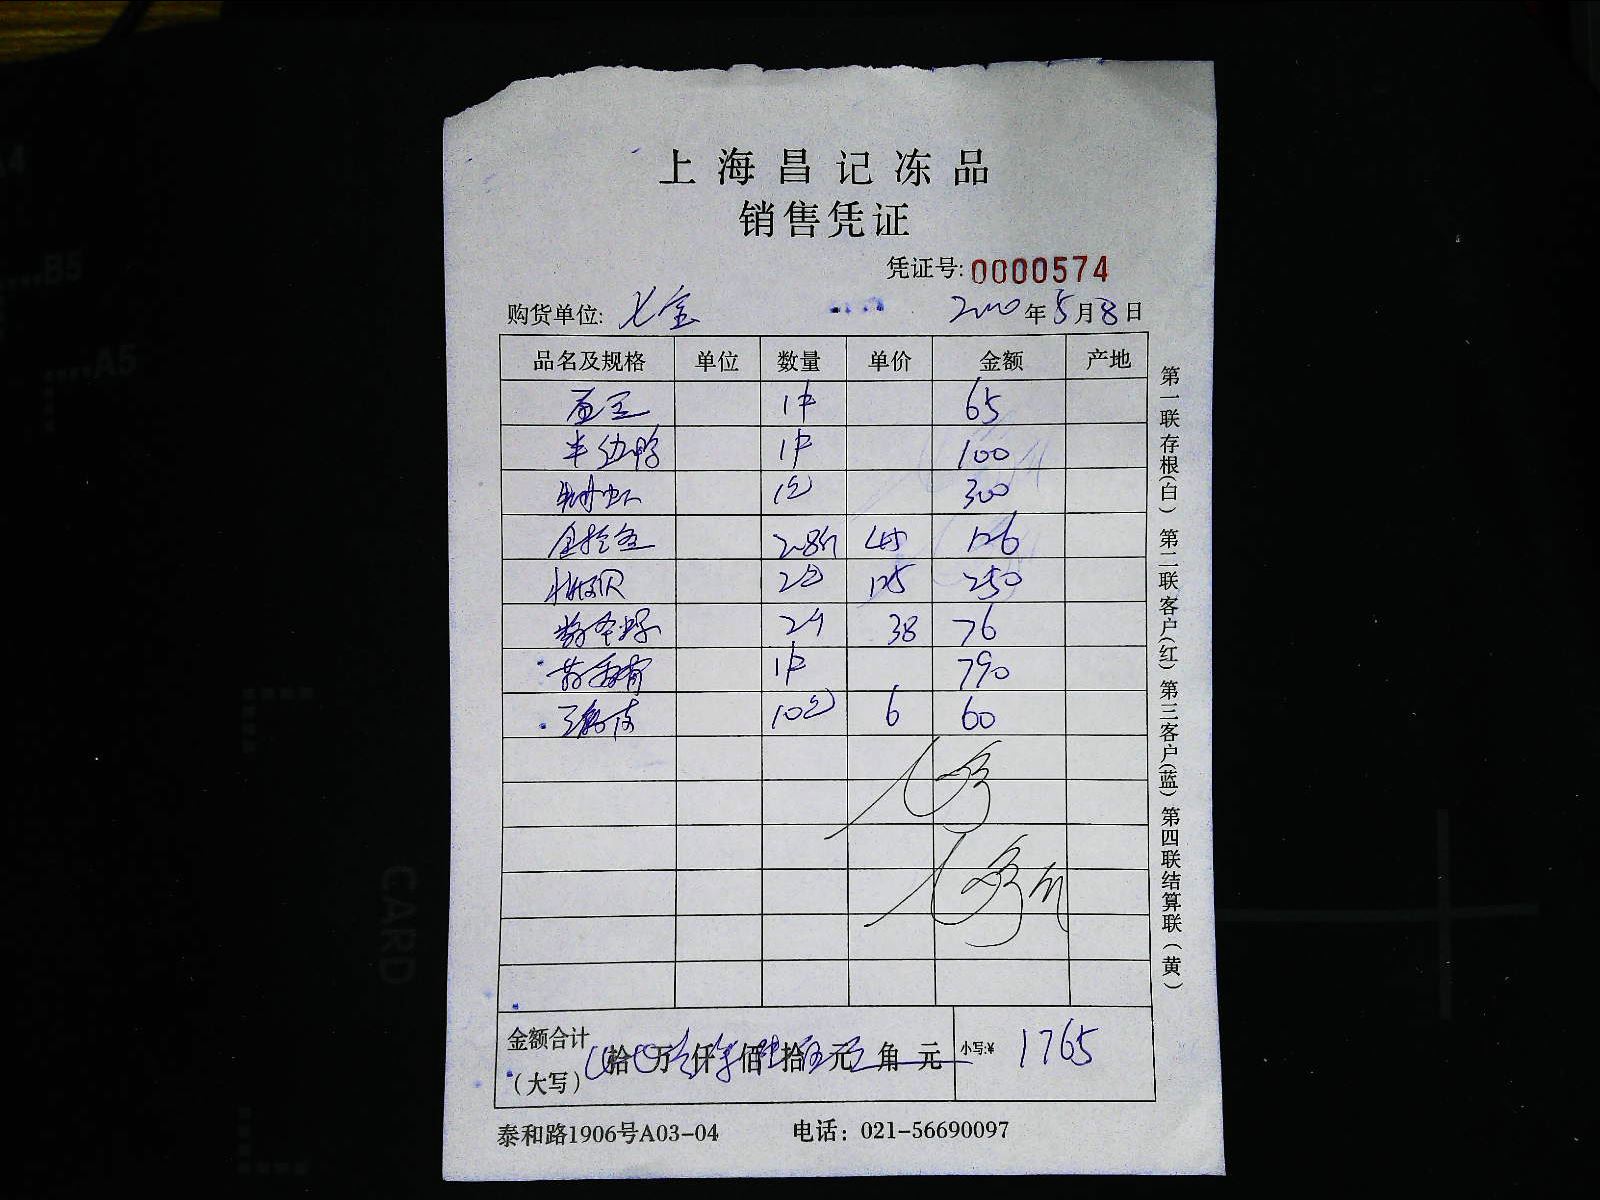 上海昌记冻品
销售凭证
凭证号: 0000574
购货单位: 年5月8日
品名及规格 单位 数量 单价 金额 产地
1件 65
半边鸭 1件 100
1包 300
2.8斤 45 126
2包 125 250
2斤 38 76
1件 790
10包 6 60
金额合计
(大写) 拾 万 仟 佰 拾 元 角 元 小写:¥ 1765
泰和路1906号A03-04 电话: 021-56690097
第一联存根(白) 第二联客户(红) 第三客户(蓝) 第四联结算联(黄)
A4
B5
A5
CARD